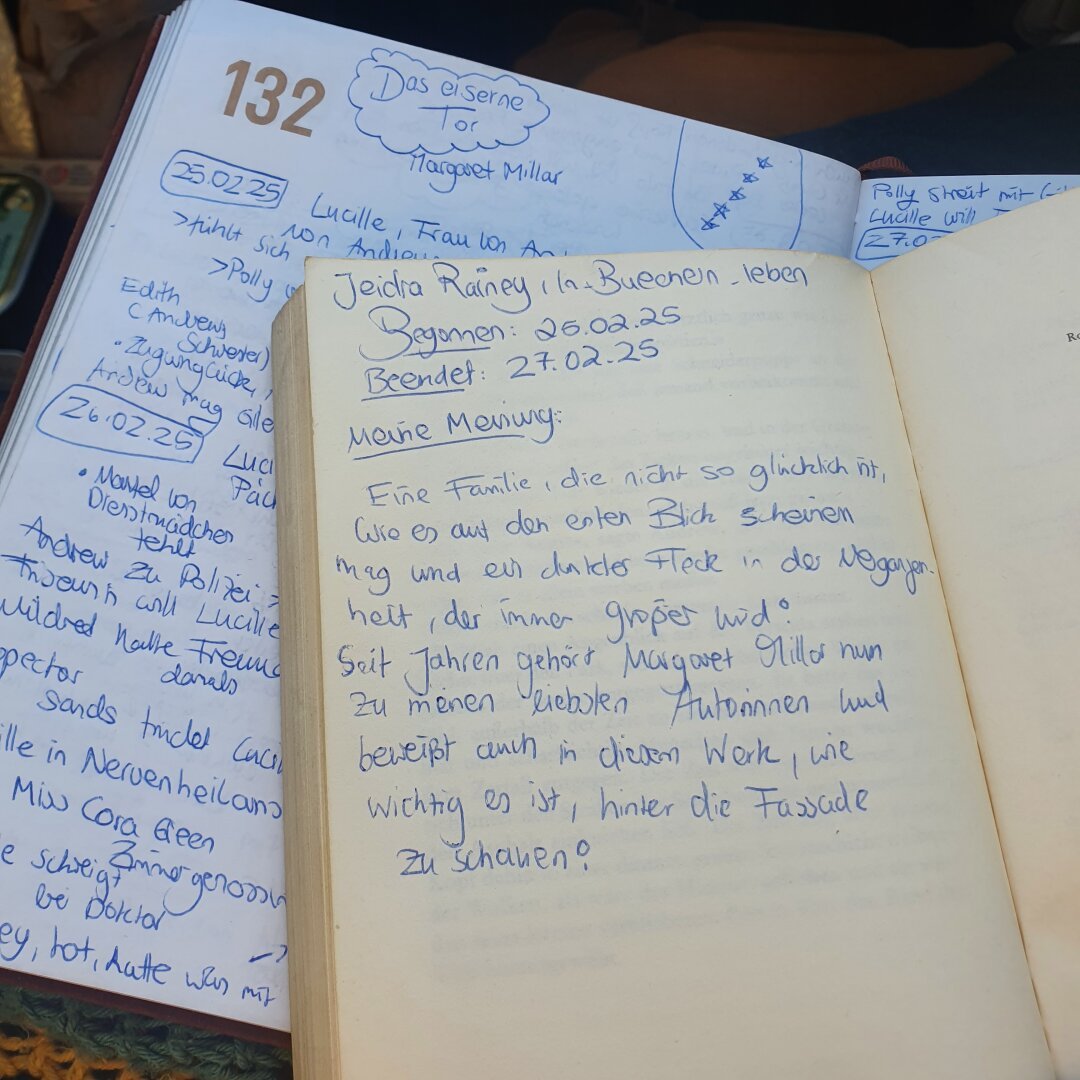 132
Das eiserne
Tor
Margaret Millar
25.02.25
Lucille, Frau von
>fühlt sich von Andrew
>Polly
Edith
(Andrews
Schwester)
• Zugunglück,
Andrew mag
26.02.25
• Mantel von
Dienstmädchen
fehlt
Andrew zu Polizei >
will Lucille
Mildred hatte
damals
Sands findet
in Nervenheilans
Miss Cora Green
Zimmergenossin
schweigt
bei Doktor
tot, hatte was mit
Polly streit mit
Lucille will
27.0
Jeidra Rainey, In Buechern leben
Begonnen: 25.02.25
Beendet: 27.02.25
Meine Meinung:
Eine Familie, die nicht so glücklich ist,
wie es auf den ersten Blick scheinen
mag und ein dunkler Fleck in der Vergangen-
heit, der immer größer wird!
Seit Jahren gehört Margaret Millar nun
zu meinen liebsten Autorinnen und
beweißt auch in diesem Werk, wie
wichtig es ist, hinter die Fassade
zu schauen!